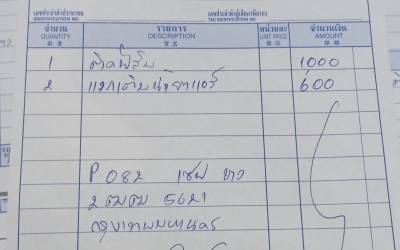 เลขประจำตัวประชาชน เลขประจำตัวผู้เสียภาษีอากร
IDENTIFICATION NO TAX IDENTIFICATION NO
จำนวน รายการ หน่วยละ จำนวนเงิน
QUANTITY DESCRIPTION UNIT PRICE AMOUNT
1 ติดฟิล์ม 1000
2 600
P 082 เชฟ ขาว
2 ฒฒ 5621
กรุงเทพมหานคร